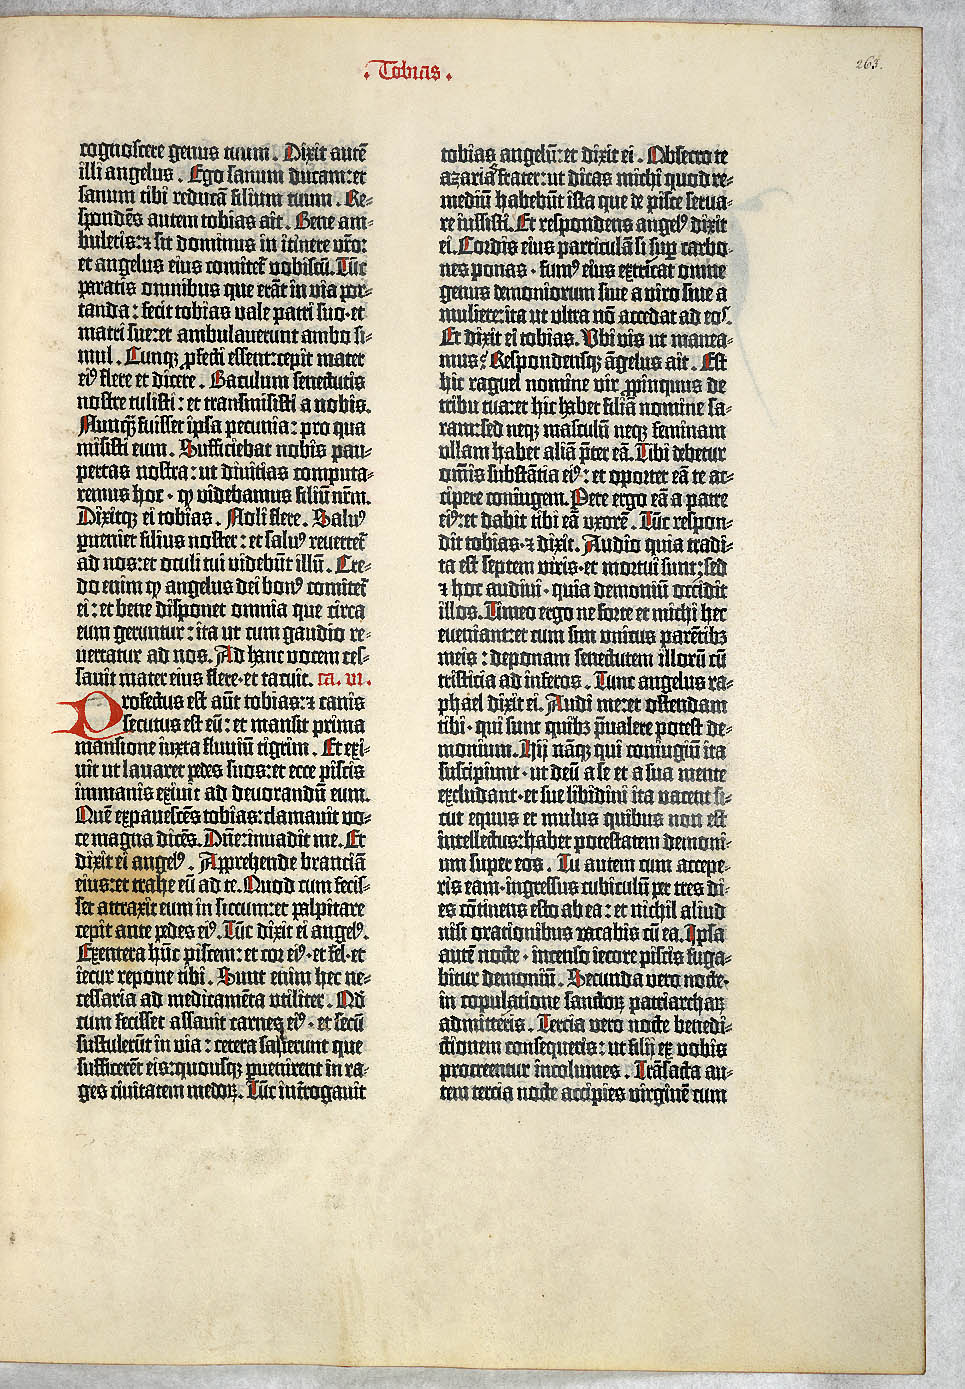 . Tobias .
263.
cognoscere genus tuum . Dixit autē
illi angelus . Ego sanum ducam: et
sanum tibi reducā filium tuum . Re-
spondēs autem tobias ait . Bene am-
buletis: ⁊ sit dominus in itinere vr̄o:
et angelus eius comitet᷑ vobiscū . Tūc
paratis omnibus que erāt in via por-
tanda : fecit tobias vale patri suo · et
matri sue: et ambulaverunt ambo si-
mul . Cunqꝫ ꝓfecti essent: cepit mater
eiꝰ flere et dicere . Baculum senectutis
nostre tulisti : et transmisisti a nobis.
Nunqꝫ̄ fuisset ipsa pecunia : pro qua
misisti eum . Sufficiebat nobis pau-
pertas nostra : ut divitias computa-
remus hoc · ꝙ videbamus filiū nr̄m.
Dixitqꝫ ei tobias . Noli flere . Saluꝰ
ꝑveniet filius noster : et saluꝰ revertet᷑
ad nos: et oculi tui videbūt illū . Cre-
do enim ꝙ angelus dei bonꝰ comitet᷑
ei : et bene disponet omnia que circa
eum geruntur : ita ut cum gaudio re-
vertatur ad nos . Ad hanc vocem ces-
savit mater eius flere · et tacuit. ca. vi .
Profectus est aūt tobias: ⁊ canis
secutus est eū : et mansit prima
mansione iuxta fluviū tigrim . Et exi-
vit ut lavaret pedes suos: et ecce piscis
immanis exivit ad devorandū eum.
Quē expavescēs tobias: clamavit vo-
ce magna dicēs. Dn̄e: invadit me . Et
dixit ei angelꝰ . Apprehende branciā
eius: et trahe eū ad te . Quod cum fecis-
set attraxit eum in siccum: et palpitare
cepit ante pedes eiꝰ. Tūc dixit ei angelꝰ.
Exentera hūc piscem: et cor eiꝰ · et fel · et
iecur repone tibi . Sunt enim hec ne-
cessaria ad medicamēta utiliter . Qd̄
cum fecisset assavit carneq eiꝰ · et secū
sustulerūt in via : cetera salierunt que
sufficerēt eis: quousqꝫ ꝑvenirent in ra-
ges civitatem medoꝝ . Tūc int̄rogavit
tobias angelū: et dixit ei . Obsecro te
azaria frater: ut dicas michi quod re-
mediū habebūt ista que de pisce serva-
re iussisti . Et respondens angelꝰ dixit
ei . Cordis eius particulā si suꝑ carbo-
nes ponas · fumꝰ eius extricat omne
genus demoniorum sive a viro sive a
muliere: ita ut ultra nō accedat ad eos.
Et dixit ei tobias. Ubi vis ut manea-
mus? Respondensqꝫ āgelus ait . Est
hic raguel nomine vir ꝓpinquus de
tribu tua: et hic habet filiā nomine sa-
ram: sed neqꝫ masculū neqꝫ feminam
ullam habet aliā p̄ter eā . Tibi debetur
om̄is substātia eiꝰ : et oportet eā te ac-
cipere coniugem . Pete ergo eā a patre
eiꝰ: et dabit tibi eā uxorē . Tūc respon-
dit tobias · ⁊ dixit . Audio quia tradi-
ta est septem viris · et mortui sunt: sed
⁊ hoc audivi · quia demoniū occidit
illos . Timeo ergo ne forte et michi hec
eveniant: et cum sim unicus parētibꝫ
meis : deponam senectutem illorū cū
tristicia ad inferos . Tunc angelus ra-
phael dixit ei . Audi me: et ostendam
tibi · qui sunt quibꝫ p̄valere potest de-
monium . Hij nāqꝫ qui coniugiū ita
suscipiunt · ut deū a se et a sua mente
excludant · et sue libidini ita vacent si-
cut equus et mulus quibus non est
intellectus: habet potestatem demoni-
um super eos . Tu autem cum accepe-
ris eam · ingressus cubiculū per tres di-
es cōtinens esto ab ea : et nichil aliud
nisi orationibus vacabis cū ea . Ipsa
autē nocte · incenso iecore piscis fuga-
bitur demoniū . Secunda vero nocte ·
in copulatione sanctoꝝ patriarchaꝝ
admitteris . Tercia vero nocte benedi-
ctionem consequeris : ut filij ex vobis
procreentur incolumes . Trāsacta au-
tem tercia nocte accipies virginē cum